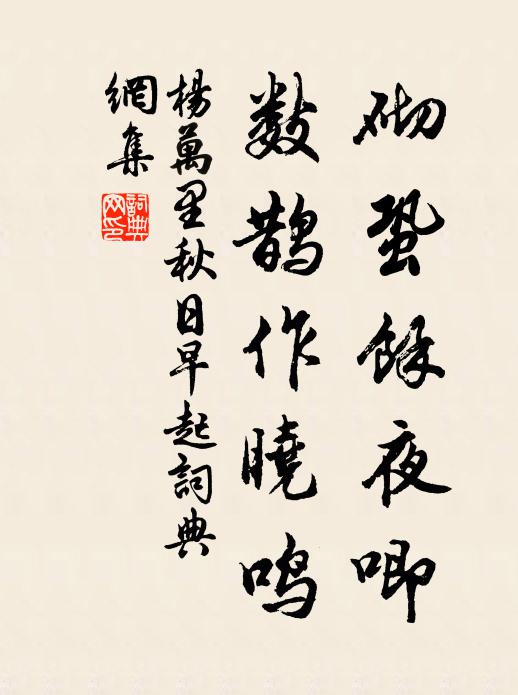 砌蛩餘夜唧
數鵲作曉鸣
楊萬里秋日早起詞典
網集
詞典网印